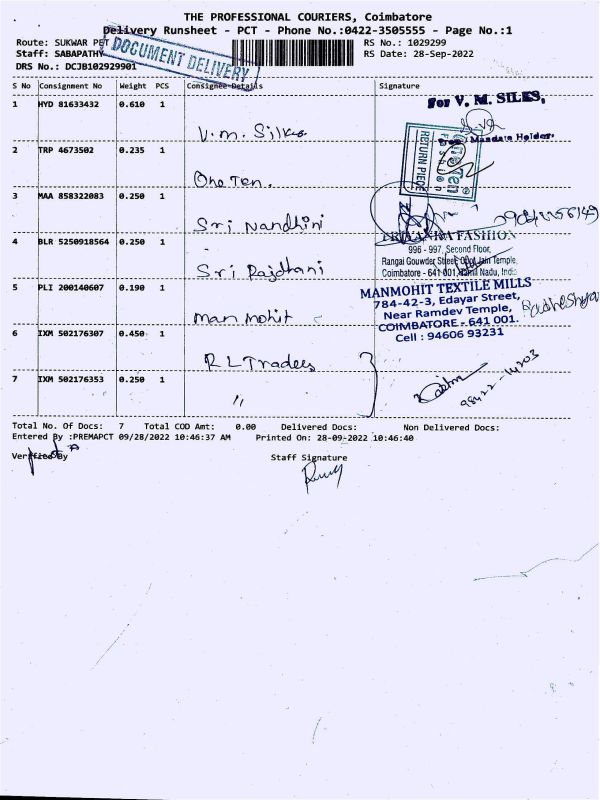 THE PROFESSIONAL COURIERS, Coimbatore
Delivery Runsheet - PCT - Phone No.:0422-3505555 - Page No.:1
Route: SUKWAR PET RS No.: 1029299
Staff: SABAPATHY RS Date: 28-Sep-2022
DRS No.: DCJB102929901
DOCUMENT DELIVERY
S No Consignment No Weight PCS Consignee Details Signature
1 HYD 81633432 0.610 1 V.M. Silks
For V. M. SILKS,
Mandate Holder.
2 TRP 4673502 0.235 1 One Ten.
RETURN PIECE
3 MAA 858322083 0.250 1 Sri Nandhini
PRIYANKA FASHION
996 - 997, Second Floor,
Rangai Gowder Street, Opp. Jain Temple,
Coimbatore - 641 001, Tamil Nadu, India
4 BLR 5250918564 0.250 1 Sri Rajdhani
5 PLI 200140607 0.190 1 Man mohit
MANMOHIT TEXTILE MILLS
784-42-3, Edayar Street,
Near Ramdev Temple,
COIMBATORE - 641 001.
Cell : 94606 93231
6 IXM 502176307 0.450 1 R L Traders
7 IXM 502176353 0.250 1 "
98422-14203
Total No. Of Docs: 7 Total COD Amt: 0.00 Delivered Docs: Non Delivered Docs:
Entered By :PREMAPCT 09/28/2022 10:46:37 AM Printed On: 28-09-2022 10:46:40
Verified By Staff Signature